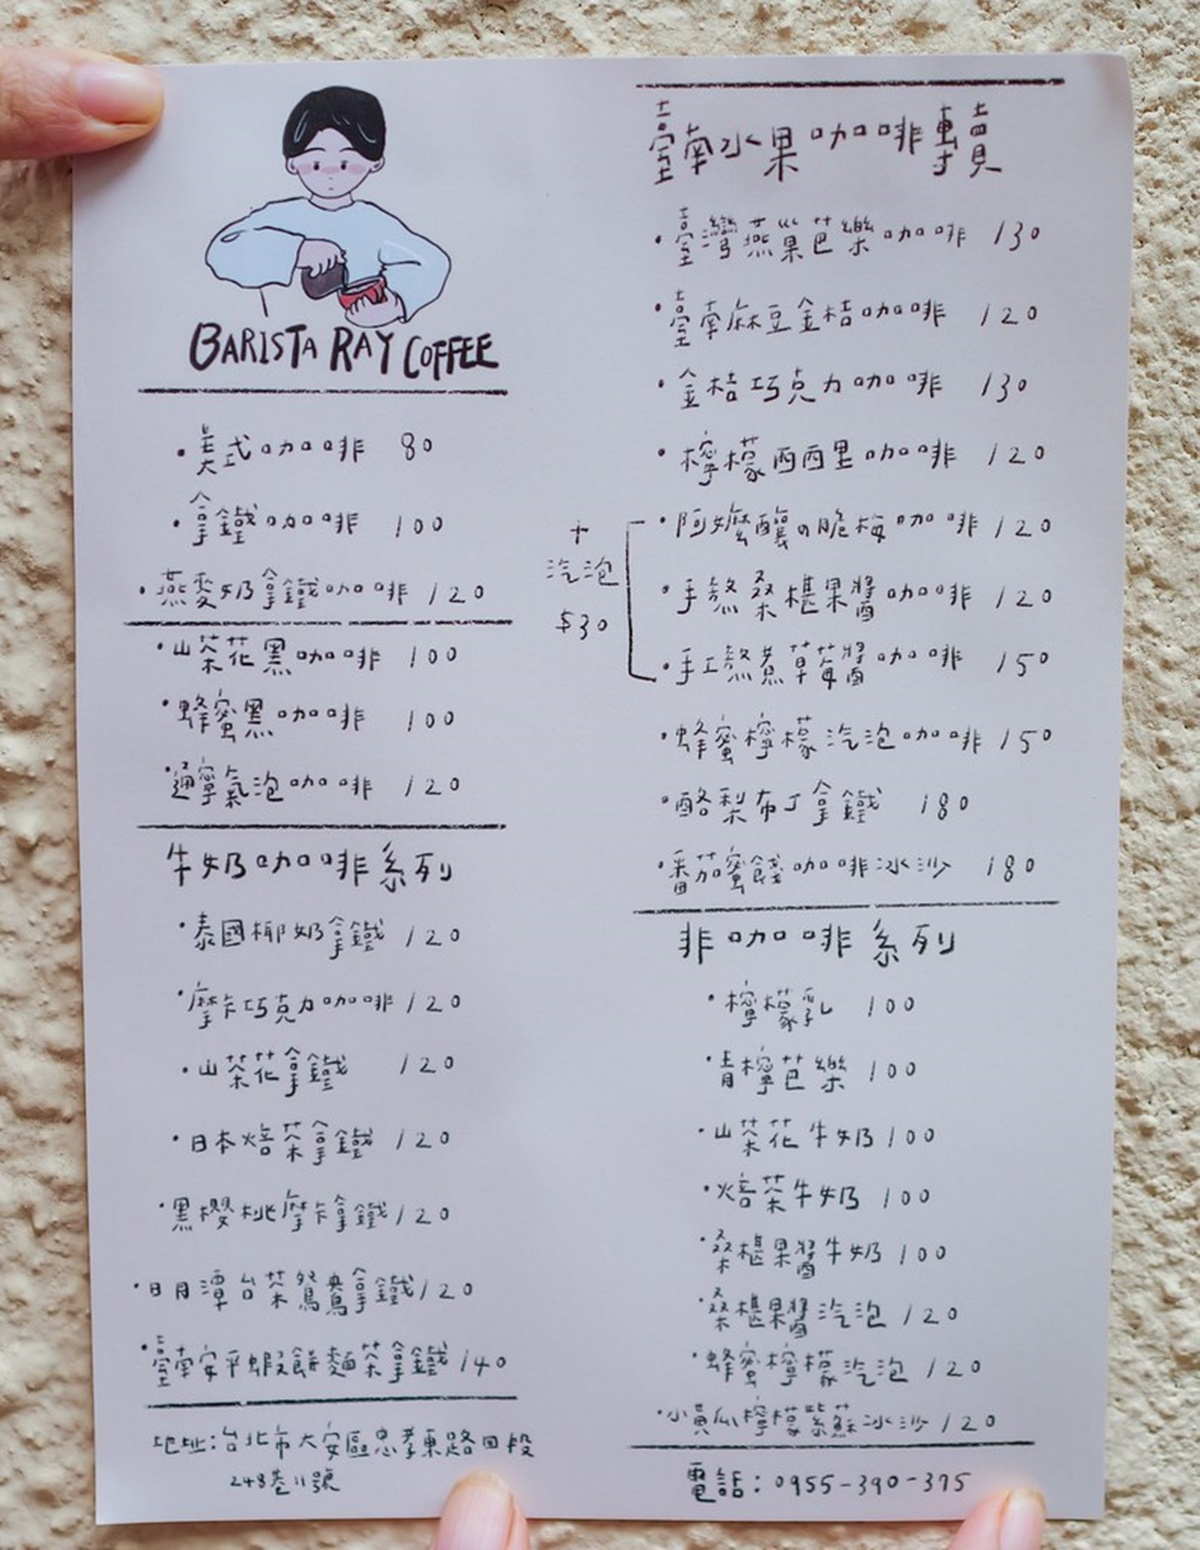 BARISTA RAY COFFEE
・美式咖啡 80
・拿鐵咖啡 100
・燕麥奶拿鐵咖啡 120
・山茶花黑咖啡 100
・蜂蜜黑咖啡 100
・通寧氣泡咖啡 120
牛奶咖啡系列
・泰國椰奶拿鐵 120
・摩卡巧克力咖啡 120
・山茶花拿鐵 120
・日本焙茶拿鐵 120
・黑櫻桃摩卡拿鐵 120
・日月潭台茶鴛鴦拿鐵 120
・臺南安平蝦餅麵茶拿鐵 140
地址:台北市大安區忠孝東路四段
248巷11號
臺南水果咖啡專賣
・臺灣燕巢芭樂咖啡 130
・臺南麻豆金桔咖啡 120
・金桔巧克力咖啡 130
・檸檬西西里咖啡 120
+
汽泡
$30
・阿嬤釀の脆梅咖啡 120
・手熬桑椹果醬咖啡 120
・手工熬煮草莓醬咖啡 150
・蜂蜜檸檬汽泡咖啡 150
・酪梨布丁拿鐵 180
・番茄蜜餞咖啡冰沙 180
非咖啡系列
・檸檬乳 100
・青檸芭樂 100
・山茶花牛奶 100
・焙茶牛奶 100
・桑椹果醬牛奶 100
・桑椹果醬汽泡 120
・蜂蜜檸檬汽泡 120
・小黃瓜檸檬紫蘇冰沙 120
電話:0955-390-375